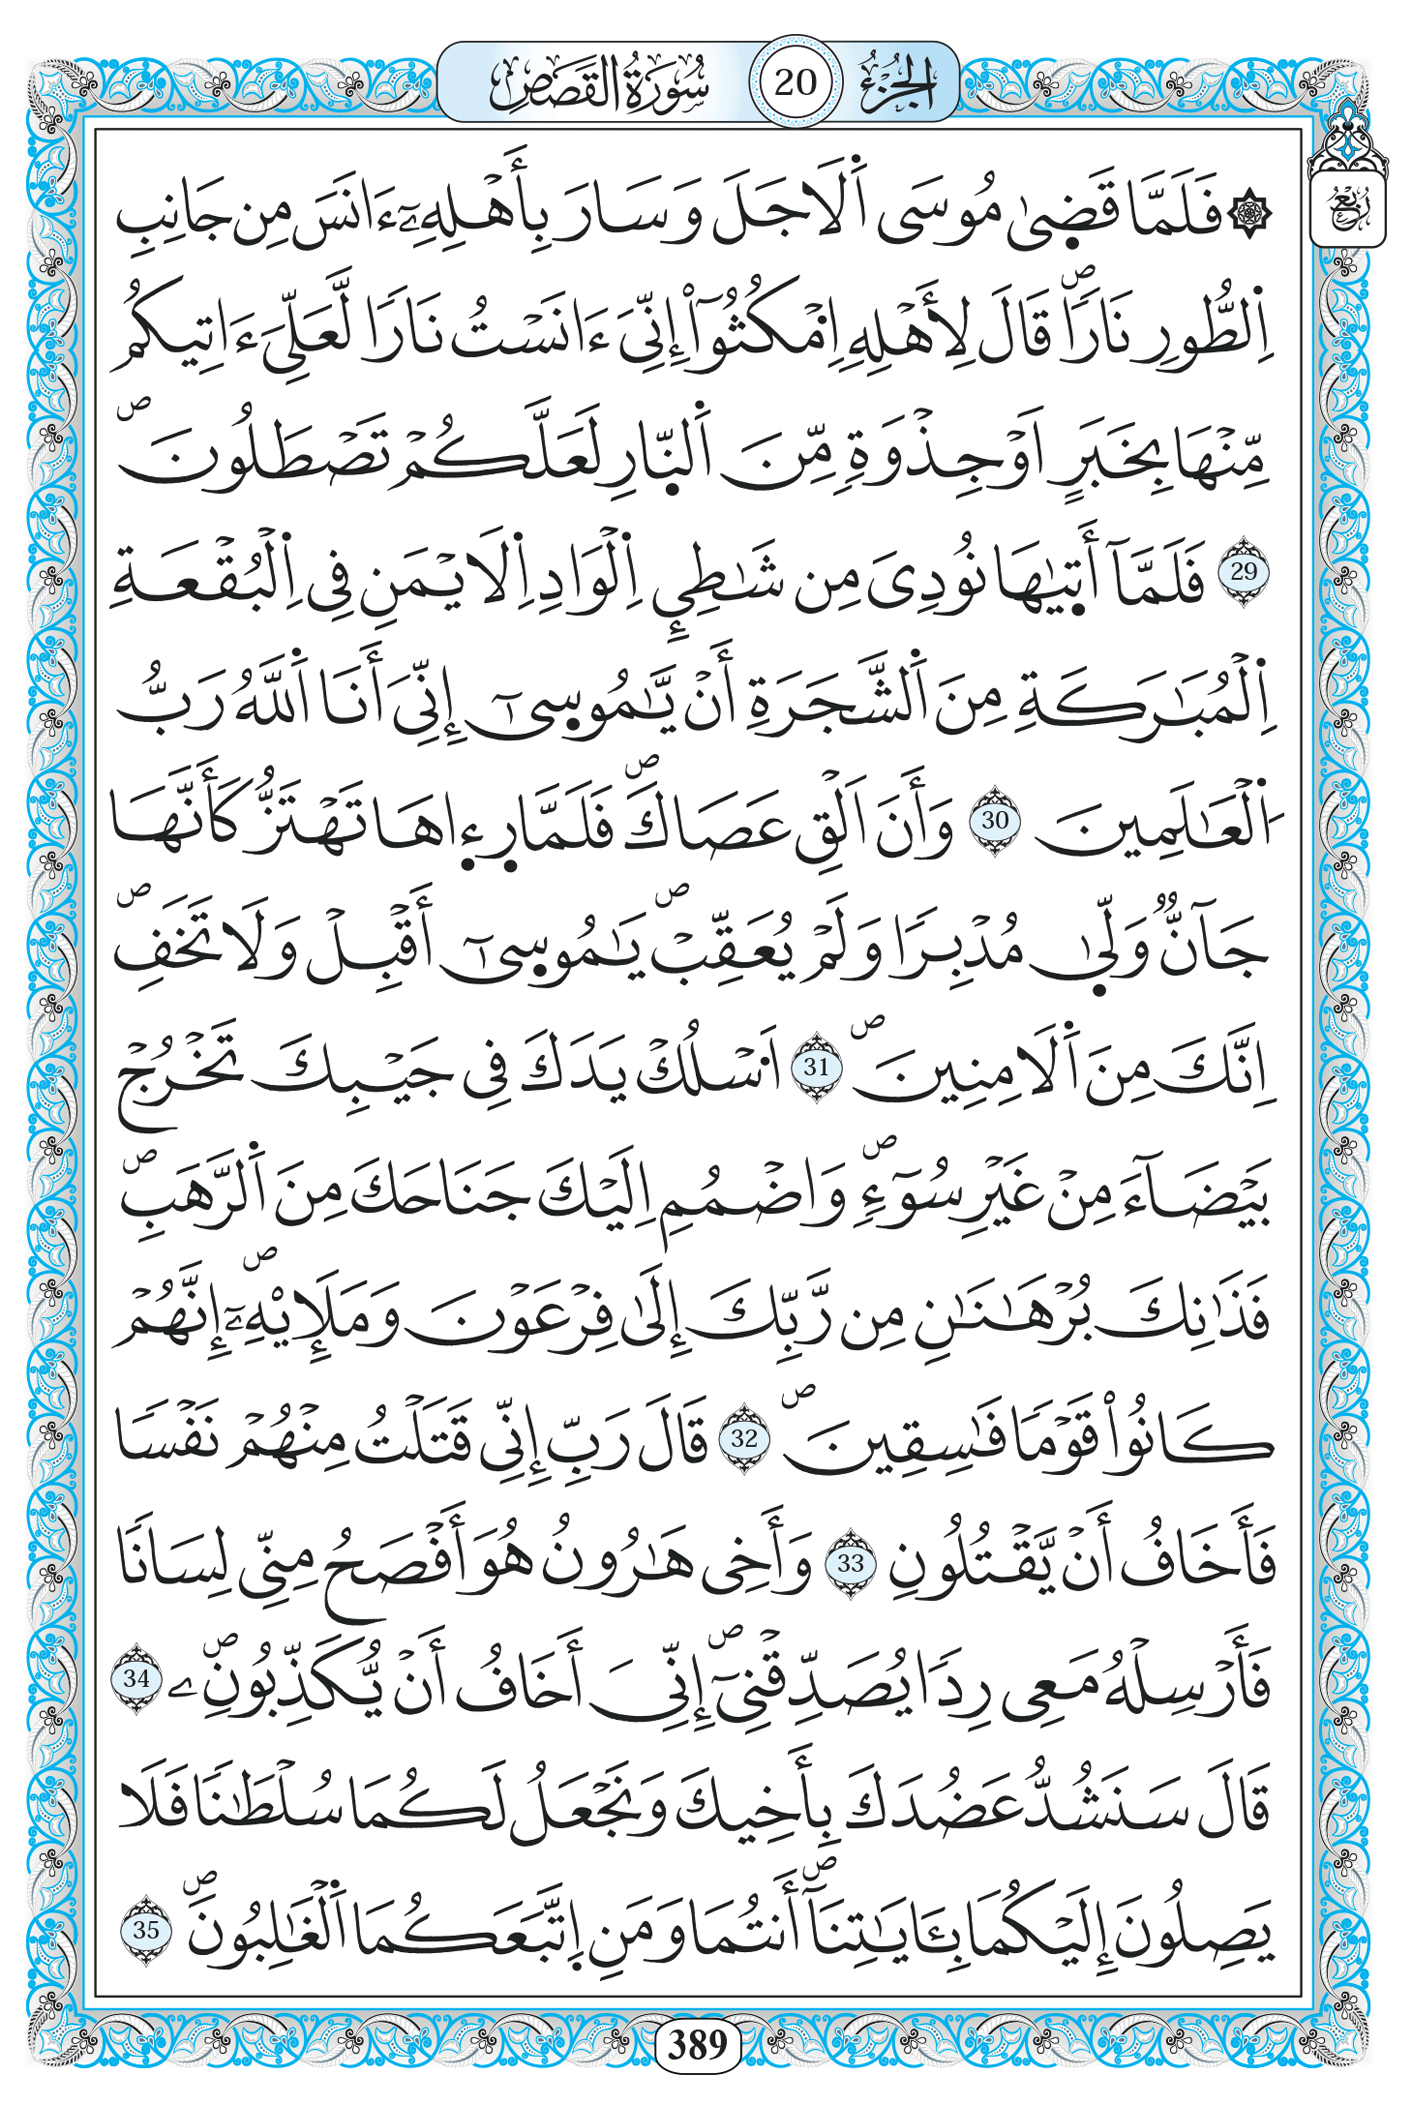 الجزء 20 سورة القصص
ربع
۞ فَلَمَّا قَضۭىٰ مُوسَى اَ۬لَاجَلَ وَسَارَ بِأَهْلِهِۦٓ ءَانَسَ مِن جَانِبِ
اِ۬لطُّورِ نَارٗاۖ قَالَ لِأَهْلِهِ اِ۟مْكُثُوٓاْ إِنِّيَ ءَانَسْتُ نَارٗا لَّعَلِّيَ ءَاتِيكُم
مِّنْهَا بِخَبَرٍ اَوْ جِذْوَةٖ مِّنَ اَ۬لنّ۪ارِ لَعَلَّكُمْ تَصْطَلُونَۖ
29 فَلَمَّآ أَت۪يٰهَا نُودِىَ مِن شَٰطِےِٕ اِ۬لْوَادِ اِ۬لَايْمَنِ فِى اِ۬لْبُقْعَةِ
اِ۬لْمُبَٰرَكَةِ مِنَ اَ۬لشَّجَرَةِ أَنْ يَّٰمُوس۪ىٰٓ إِنِّىَ أَنَا اَ۬للَّهُ رَبُّ
اُ۬لْعَٰلَمِينَ 30 وَأَنَ اَلْقِ عَصَاكَۖ فَلَمَّا ر۪ء۪اهَا تَهْتَزُّ كَأَنَّهَا
جَآنّٞ وَلّ۪ىٰ مُدْبِرٗا وَلَمْ يُعَقِّبْۖ يَٰمُوس۪ىٰٓ أَقْبِلْ وَلَا تَخَفِۖ
اِنَّكَ مِنَ اَ۬لَامِنِينَۖ 31 اَ۟سْلُكْ يَدَكَ فِى جَيْبِكَ تَخْرُجْ
بَيْضَآءَ مِنْ غَيْرِ سُوٓءٖۖ وَاضْمُمِ اِلَيْكَ جَنَاحَكَ مِنَ اَ۬لرَّهَبِۖ
فَذَٰنِكَ بُرْهَٰنَٰنِ مِن رَّبِّكَ إِلَىٰ فِرْعَوْنَ وَمَلَإِيْهِۦٓۖ إِنَّهُمْ
كَانُواْ قَوْمٗا فَٰسِقِينَۖ 32 قَالَ رَبِّ إِنِّى قَتَلْتُ مِنْهُمْ نَفْسٗا
فَأَخَافُ أَنْ يَّقْتُلُونِ 33 وَأَخِى هَٰرُونُ هُوَ أَفْصَحُ مِنِّى لِسَانٗا
فَأَرْسِلْهُ مَعِى رِدٗا يُصَدِّقْنِىٓۖ إِنِّىَ أَخَافُ أَنْ يُّكَذِّبُونِۦۖ 34
قَالَ سَنَشُدُّ عَضُدَكَ بِأَخِيكَ وَنَجْعَلُ لَكُمَا سُلْطَٰنٗا فَلَا
يَصِلُونَ إِلَيْكُمَا بِـَٔايَٰتِنَآۖ أَنتُمَا وَمَنِ اِ۪تَّبَعَكُمَا اَ۬لْغَٰلِبُونَۖ 35
389